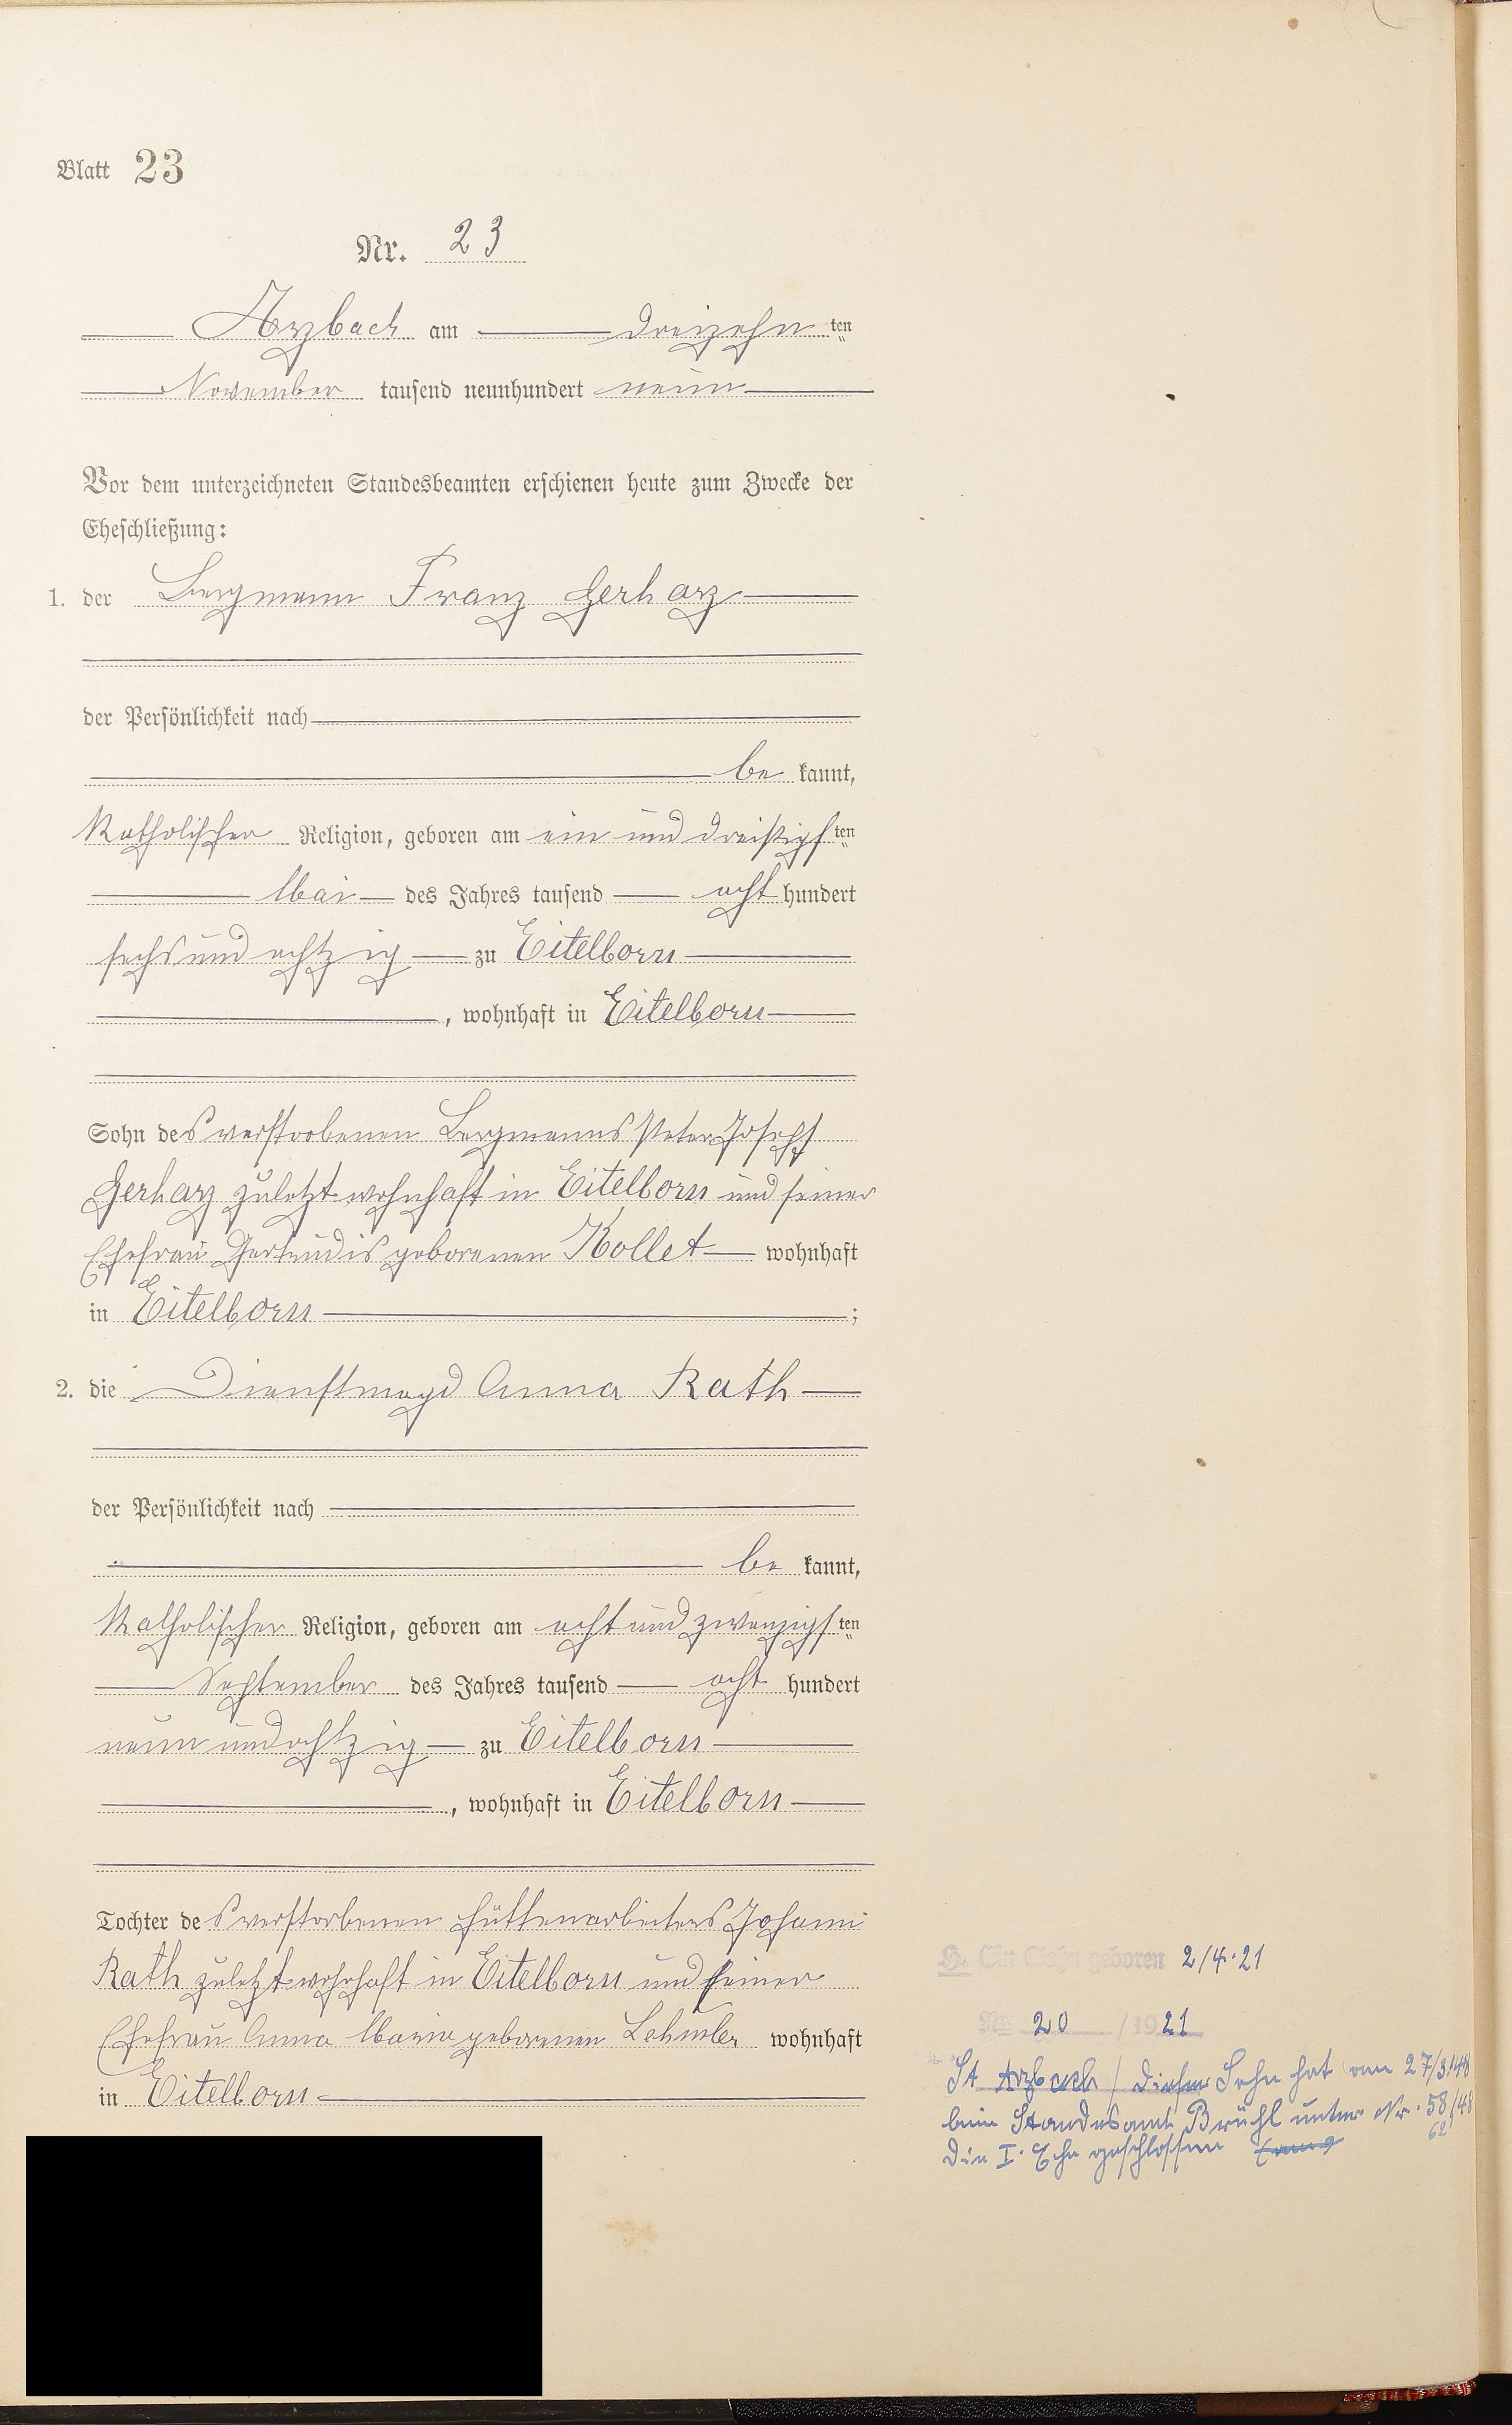 Blatt 23
Nr. 23
Arzbach am dreizehn ten
November tausend neunhundert neun
Vor dem unterzeichneten Standesbeamten erschienen heute zum Zwecke der
Eheschließung:
1. der Bergmann Franz Gerharz
der Persönlichkeit nach
be kannt,
Katholischer Religion, geboren am ein und dreißigsten
Mai des Jahres tausend acht hundert
sechs und achtzig zu Eitelborn
, wohnhaft in Eitelborn
Sohn des verstorbenen Bergmanns Peter Joseph
Gerharz zuletzt wohnhaft in Eitelborn und seiner
Ehefrau Gertrudis geborenen Kollet wohnhaft
in Eitelborn ;
2. die Dienstmagd Anna Rath
der Persönlichkeit nach
be kannt,
Katholischer Religion, geboren am acht und zwanzigsten
September des Jahres tausend acht hundert
neun und achtzig zu Eitelborn
, wohnhaft in Eitelborn
Tochter des verstorbenen Hüttenarbeiters Johann
Rath zuletzt wohnhaft in Eitelborn und seiner
Ehefrau Anna Maria geborenen Lehmler wohnhaft
in Eitelborn
H. Ein Sohn geboren 2/4.21
Nr. 20 /1921
St Arzbach / Dieser Sohn hat am 27/3.48
beim Standesamt Brühl unter Nr. 58/48
62
die I. Ehe geschlossen